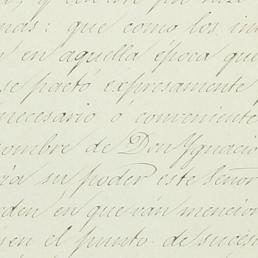 mas: que como les in
en aquella época que
se pactó expresamente
necesario ó conveniente
nombre de Don Ygnacio
su poder este Señor
rden en que ván mencion
en el punto de suces